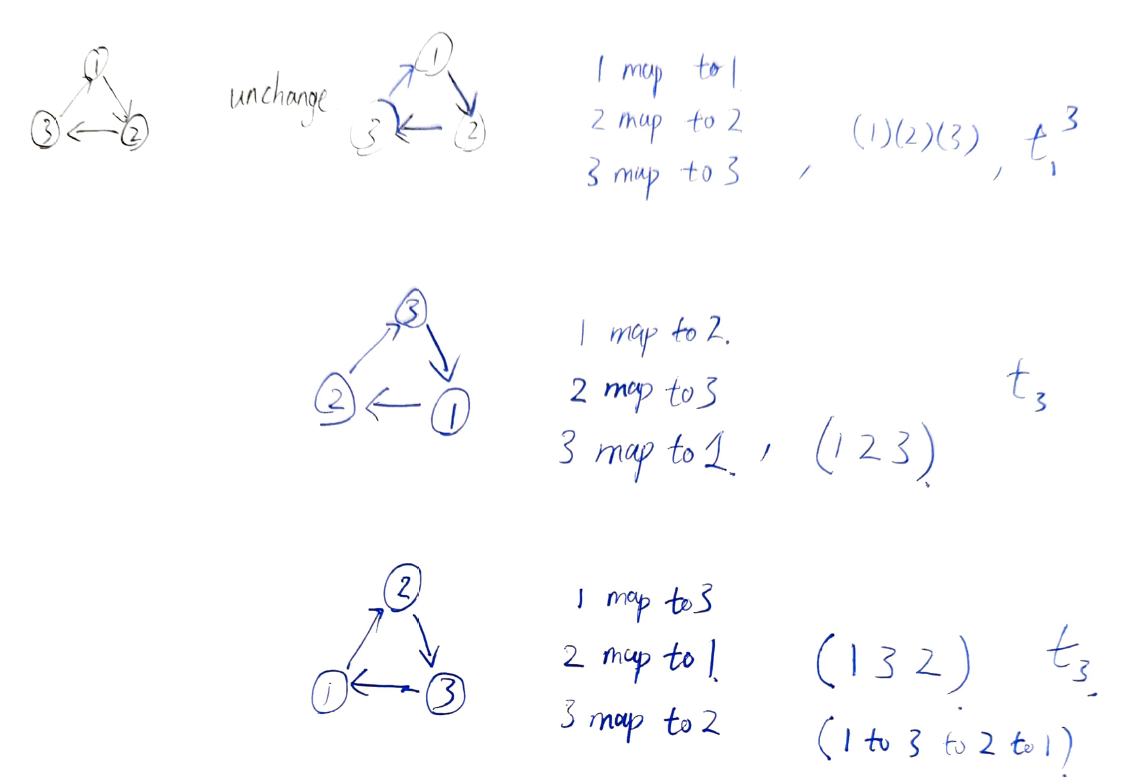 1
3
2
unchange
1
3
2
1 map to 1
2 map to 2
3 map to 3 , (1)(2)(3), t₁³
3
2
1
1 map to 2.
2 map to 3
3 map to 1. , (1 2 3).
t₃
2
1
3
1 map to 3
2 map to 1
3 map to 2
(1 3 2).
t₃.
(1 to 3 to 2 to 1)